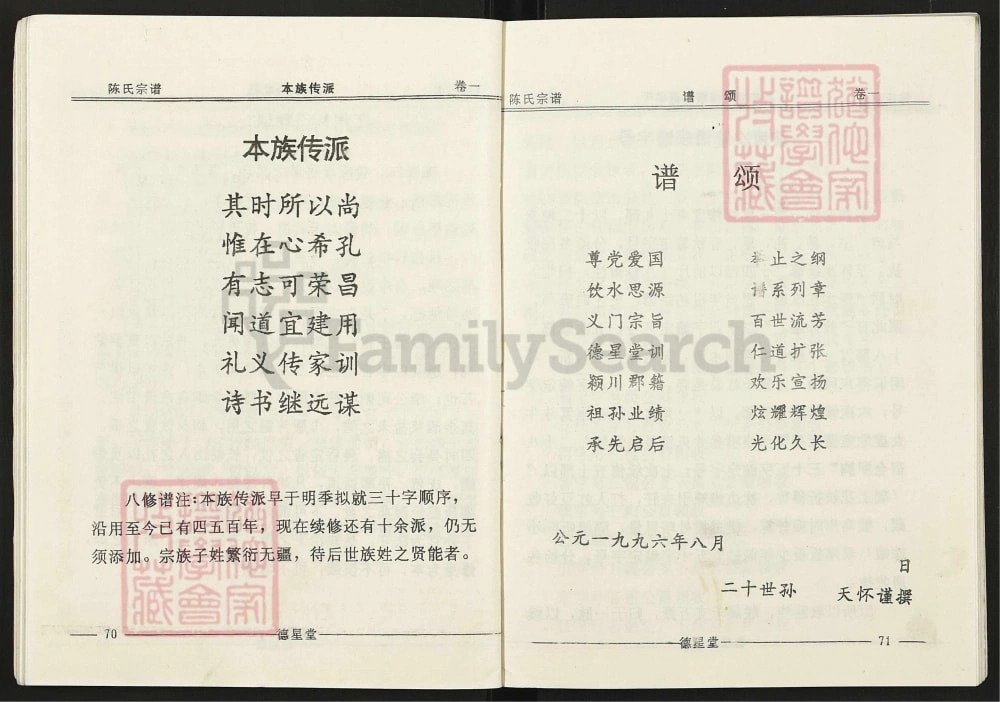 陈氏宗谱 本族传派 卷一
本族传派
其时所以尚
惟在心希孔
有志可荣昌
闻道宜建用
礼义传家训
诗书继远谋
八修谱注：本族传派早于明季拟就三十字顺序，
沿用至今已有四五百年，现在续修还有十余派，仍无
须添加。宗族子姓繁衍无疆，待后世族姓之贤能者。
70 德星堂
陈氏宗谱 谱 颂 卷一
谱 颂
尊党爱国 举止之纲
饮水思源 谱系列章
义门宗旨 百世流芳
德星堂训 仁道扩张
颍川郡籍 欢乐宣扬
祖孙业绩 炫耀辉煌
承先启后 光化久长
公元一九九六年八月
日
二十世孙 天怀谨撰
德星堂 71
FamilySearch